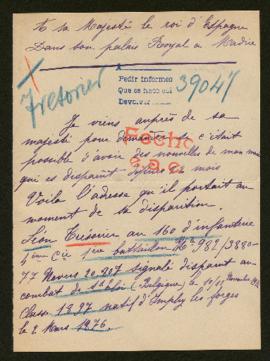 A sa Majesté le roi d'Espagne
Dans son palais Royal a Madrid
Tresorier
Pedir informes
Que se haga aqui
Devolver
39047
Je viens auprès de sa
majesté pour demander si c'était
possible d'avoir des nouvelles de mon mari
qui est disparut depuis mois
Fecho
Voila l'adresse qu'il portait au
moment de sa disparition.
Léon Tresorier au 160 d'infanterie
4ème Cie 1er bataillon No 982/3880-
77 20.207 signalé disparut au
combat de St Eloi (Belgique) le 10/11 Novembre
Classe 1897 natif d'Imphy les forges
le 2 Mars 1876.